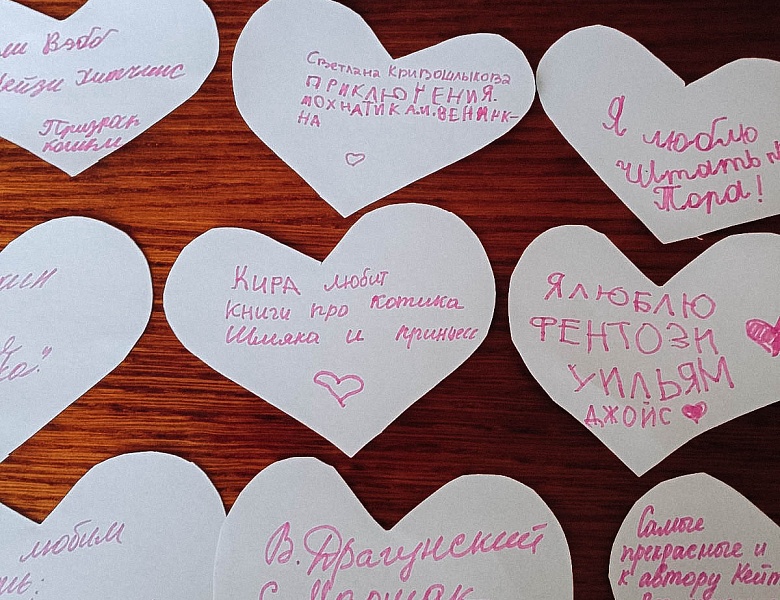 Вэбб
Хитчинс
Призрак
кошки
Светлана Кривошлыкова
ПРИКЛЮЧЕНИЯ.
МОХНАТИКА.И.ВЕНИЧК-
НА
Я люблю
читать
Тора!
Кира любит
книги про котика
Шмяка и принцесс
Я ЛЮБЛЮ
ФЕНТОЗИ
УИЛЬЯМ
ДЖОЙС
любим
В. Драгунский
С. Маршак
Самые
прекрасные и
к автору Кейт